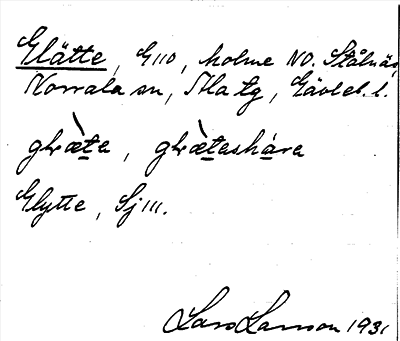 Glätte, G110, holme NO. Stålnäs,
Norrala sn, Ala tg, Gävleb. l.
glæ̀te, glæ̀teshára
Glytte, Sj 111.
Lars Larsson 1931